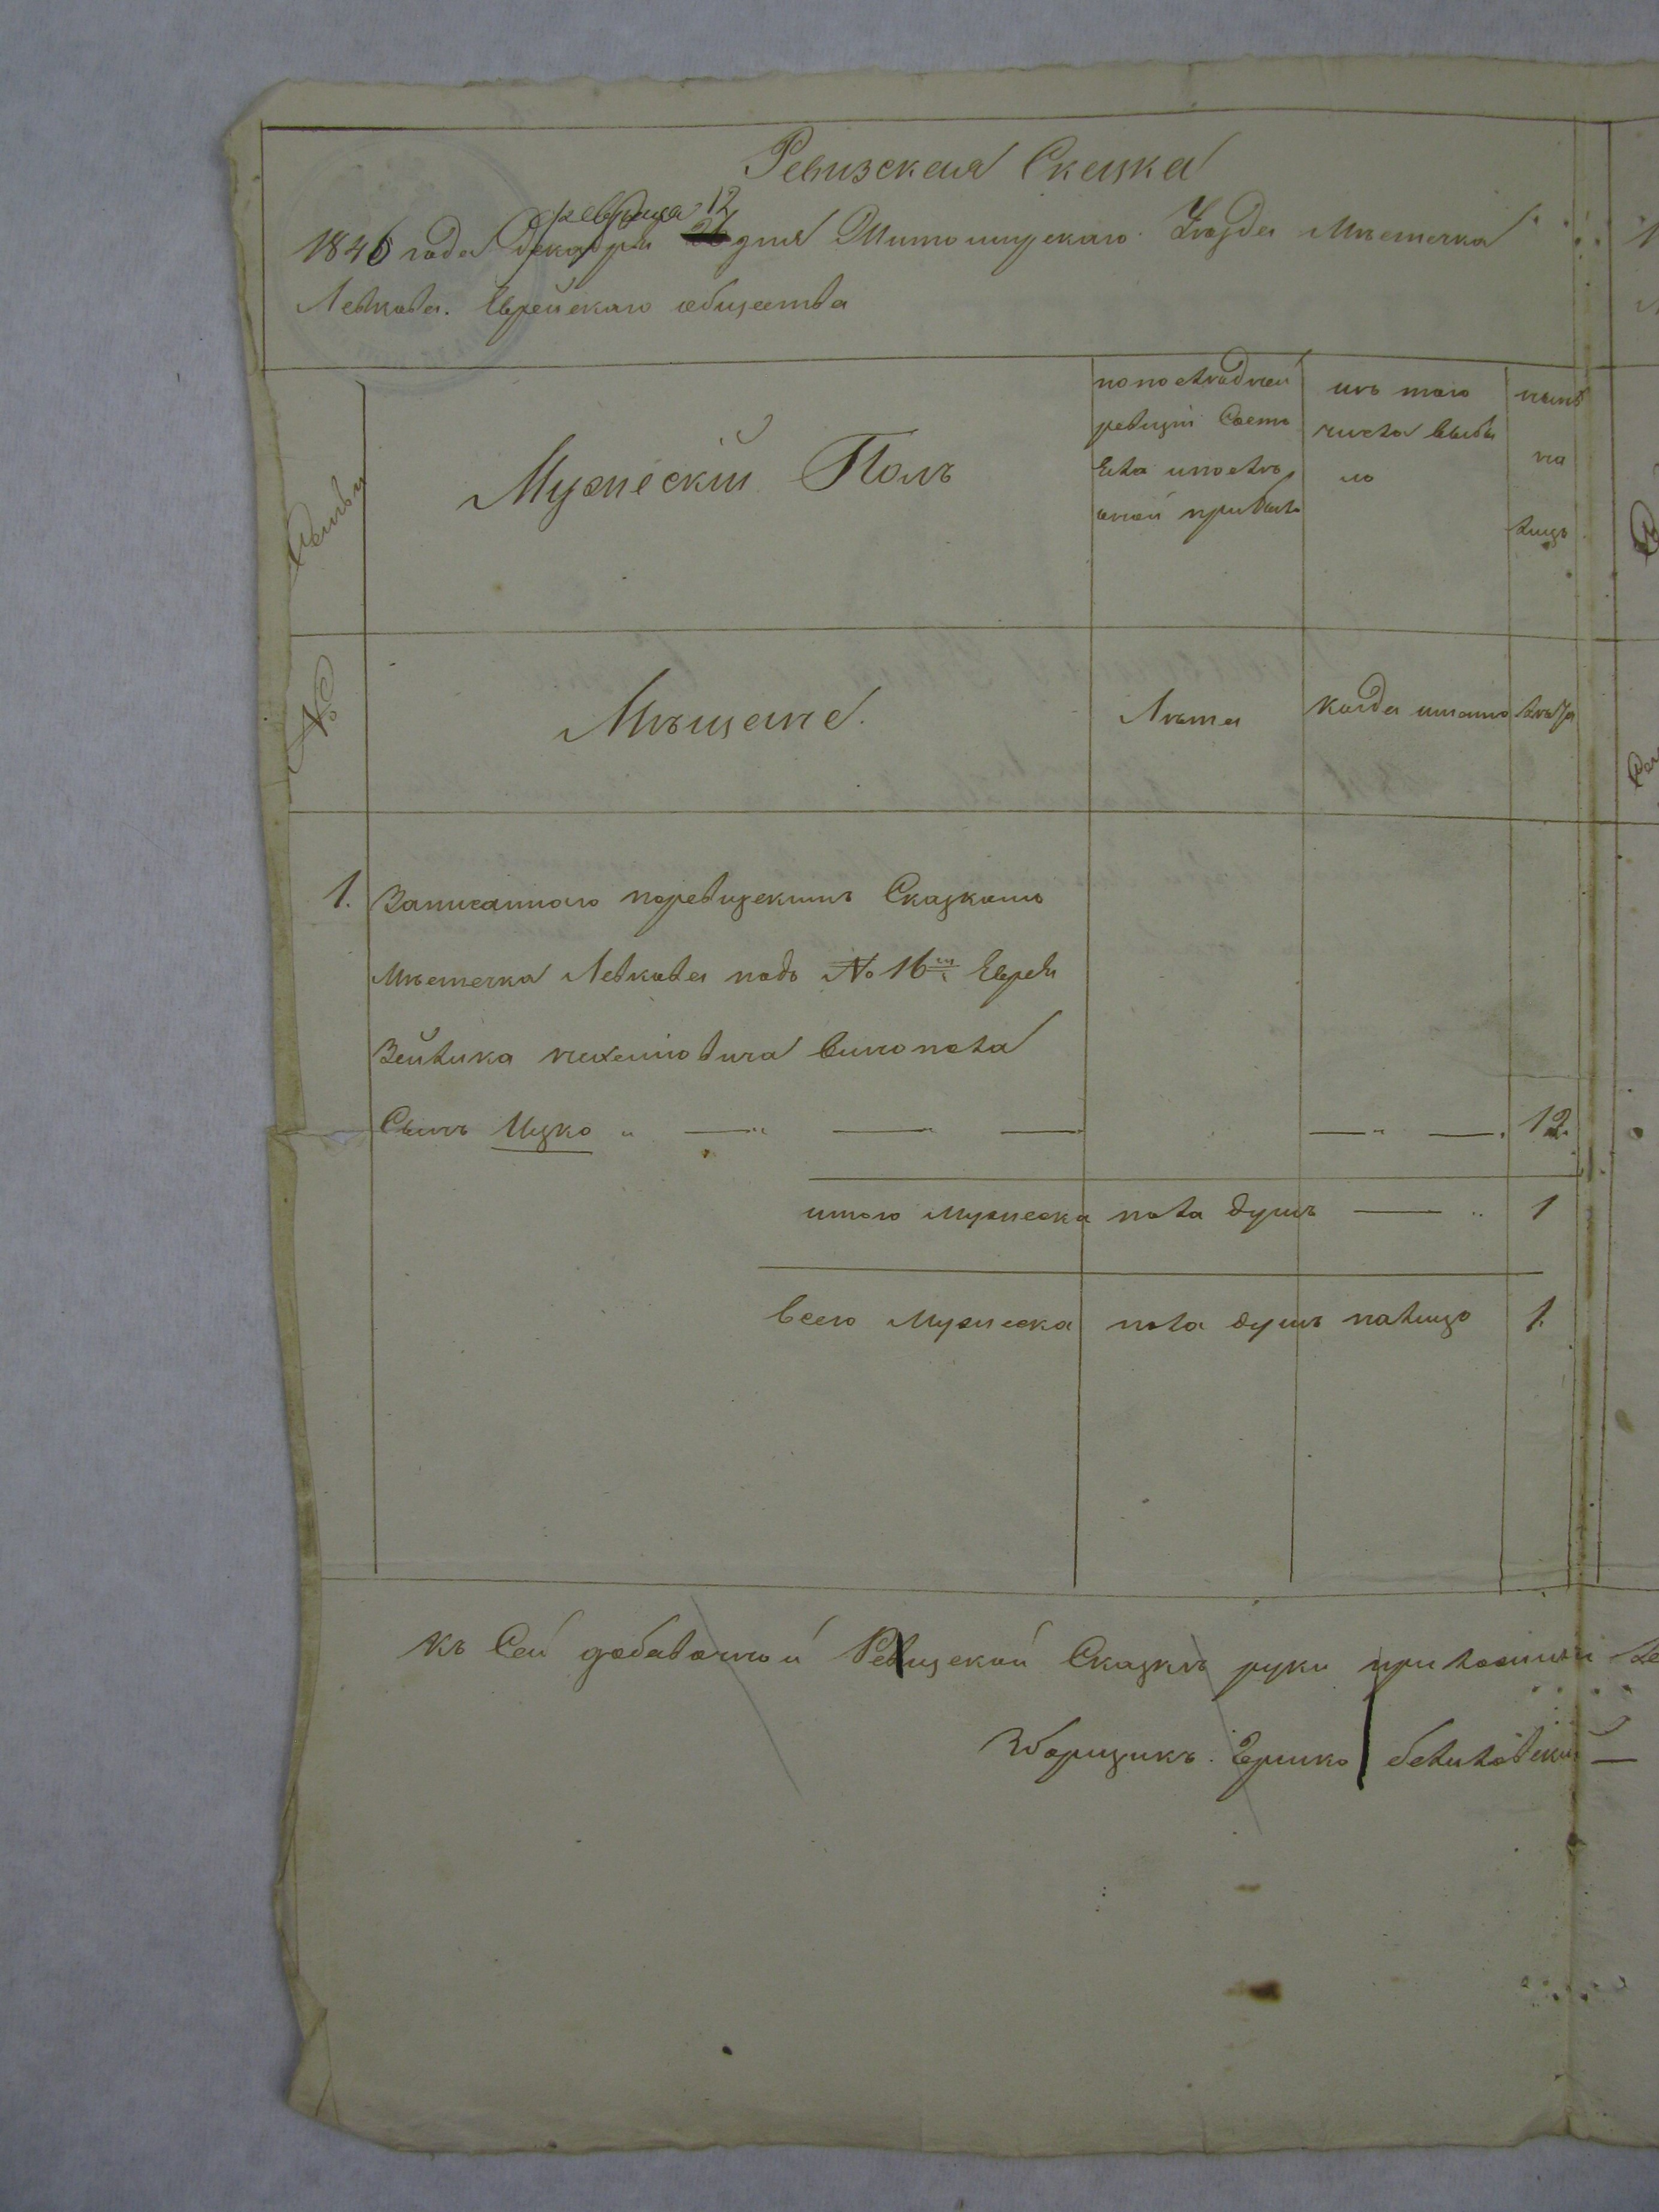 Ревизская Сказка
февраля 12
1846 года декабря 26 дня Житомирскаго Уезда Мѣстечка
Левкова. Еврейскаго общества
Семьи
Мужескiй Полъ
по последней
ревизiи Состо
яло и после
оной прибыло
изъ того
числа выбы
ло
нынѣ
на
лицо
№
Мѣщане.
Лѣта
Когда именно
лѣта
1. Записанного по ревизскимъ Сказкамъ
Мѣстечка Левкова подъ № 16м Еврея
Зейлика Винопола
Сынъ Ицко " — " — — — " — . 12.
итого мужеска пола душъ — " 1
всего мужеска пола душъ налицо 1.
Къ Сей добавочной Ревизской Сказкѣ руки приложили
Зборщикъ. Гершко Белиловскiй —